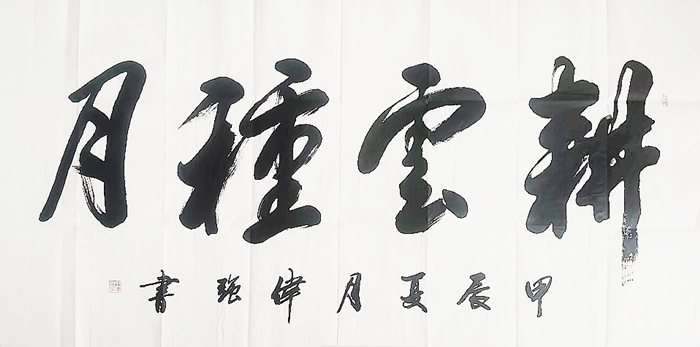 耕雲種月
甲辰夏月偉強書